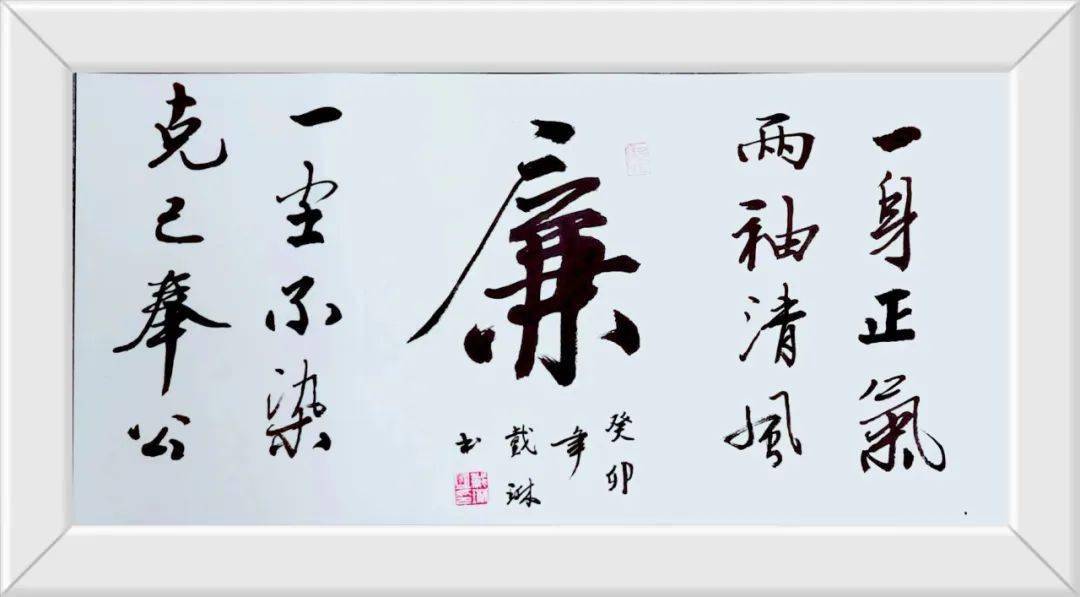 一身正氣
两袖清風
廉
癸卯
年
戴琳
书
一尘不染
克己奉公